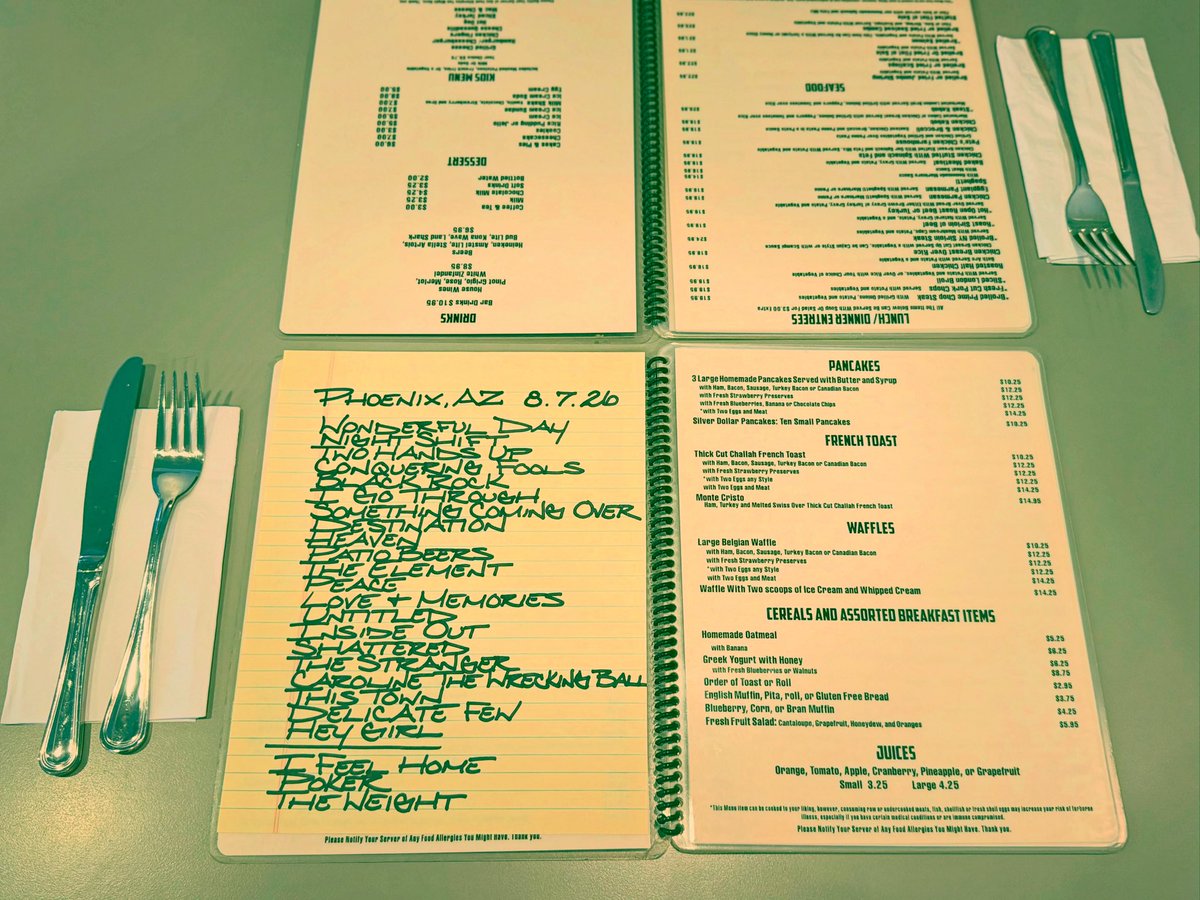 PHOENIX, AZ 8.7.26
WONDERFUL DAY
NIGHT SHIFT
TWO HANDS UP
CONQUERING FOOLS
BLACK ROCK
I GO THROUGH
SOMETHING COMING OVER
DESTINATION
HEAVEN
PATIO BEERS
THE ELEMENT
PEACE
LOVE + MEMORIES
UNTITLED
INSIDE OUT
SHATTERED
THE STRANGER
CAROLINE THE WRECKING BALL
THIS TOWN
DELICATE FEW
HEY GIRL
I FEEL HOME
POKER
THE WEIGHT
Please Notify Your Server of Any Food Allergies You Might Have. Thank you.
PANCAKES
3 Large Homemade Pancakes Served with Butter and Syrup $10.25
with Ham, Bacon, Sausage, Turkey Bacon or Canadian Bacon $12.25
with Fresh Strawberry Preserves $12.25
with Fresh Blueberries, Banana or Chocolate Chips $12.25
*with Two Eggs and Meat $14.25
Silver Dollar Pancakes: Ten Small Pancakes $10.25
FRENCH TOAST
Thick Cut Challah French Toast $10.25
with Ham, Bacon, Sausage, Turkey Bacon or Canadian Bacon $12.25
with Fresh Strawberry Preserves $12.25
*with Two Eggs any Style $12.25
with Two Eggs and Meat $14.25
Monte Cristo $14.95
Ham, Turkey and Melted Swiss Over Thick Cut Challah French Toast
WAFFLES
Large Belgian Waffle $10.25
with Ham, Bacon, Sausage, Turkey Bacon or Canadian Bacon $12.25
with Fresh Strawberry Preserves $12.25
*with Two Eggs any Style $12.25
with Two Eggs and Meat $14.25
Waffle With Two scoops of Ice Cream and Whipped Cream $14.25
CEREALS AND ASSORTED BREAKFAST ITEMS
Homemade Oatmeal $5.25
with Banana $6.25
Greek Yogurt with Honey $6.25
with Fresh Blueberries or Walnuts $8.75
Order of Toast or Roll $2.95
English Muffin, Pita, roll, or Gluten Free Bread $3.75
Blueberry, Corn, or Bran Muffin $4.25
Fresh Fruit Salad: Cantaloupe, Grapefruit, Honeydew, and Oranges $5.95
JUICES
Orange, Tomato, Apple, Cranberry, Pineapple, or Grapefruit
Small 3.25 Large 4.25
*This Menu item can be cooked to your liking, however, consuming raw or undercooked meats, fish, shellfish or fresh shell eggs may increase your risk of foodborne
illness, especially if you have certain medical conditions or are immune compromised.
Please Notify Your Server of Any Food Allergies You Might Have. Thank you.
LUNCH/DINNER ENTREES
All The Items Below Can Be Served With Soup Or Salad For $3.00 Extra
*Broiled Prime Chop Steak $19.95
With Grilled Onions, Potato and Vegetables
*Fresh Cut Pork Chops
Served With Potato and Vegetables
*Sliced London Broil
Roasted Half Chicken
Chicken Breast Over Rice
*Broiled NY Sirloin Steak
*Roast Sirloin of Beef
*Hot Open Roast Beef or Turkey
Chicken Parmesan
Eggplant Parmesan
Spaghetti
With Meat Sauce
Baked Meatloaf
Chicken Stuffed With Spinach and Feta
Pete's Chicken Farmhouse
Chicken & Broccoli
Chicken Kabob
*Steak Kabob
SEAFOOD
Broiled or Fried Jumbo Shrimp
Broiled or Fried Scallops
Broiled or Fried Filet of Sole
Broiled or Fried Seafood Combo
Stuffed Filet of Sole
DRINKS
Bar Drinks $10.95
House Wines
Pinot Grigio, Rose, Merlot,
White Zinfandel
$8.95
Beers
Heineken, Amstel Lite, Stella Artois,
Bud, Lite, Kona Wave, Land Shark
$6.95
Coffee & Tea $3.00
Milk $3.25
Chocolate Milk $4.25
Soft Drinks $3.25
Bottled Water $2.00
DESSERT
Cakes & Pies $6.00
Cheesecake $7.00
Cookies $3.00
Rice Pudding or Jello $5.00
Ice Cream
Ice Cream Sundae $7.00
Milk Shake $7.00
Ice Cream Soda
Egg Cream
KIDS MENU
Grilled Cheese
Hamburger, Cheeseburger
Chicken Fingers
Cheese Quesadilla
Hot Dog
Sliced Turkey
Mac & Cheese